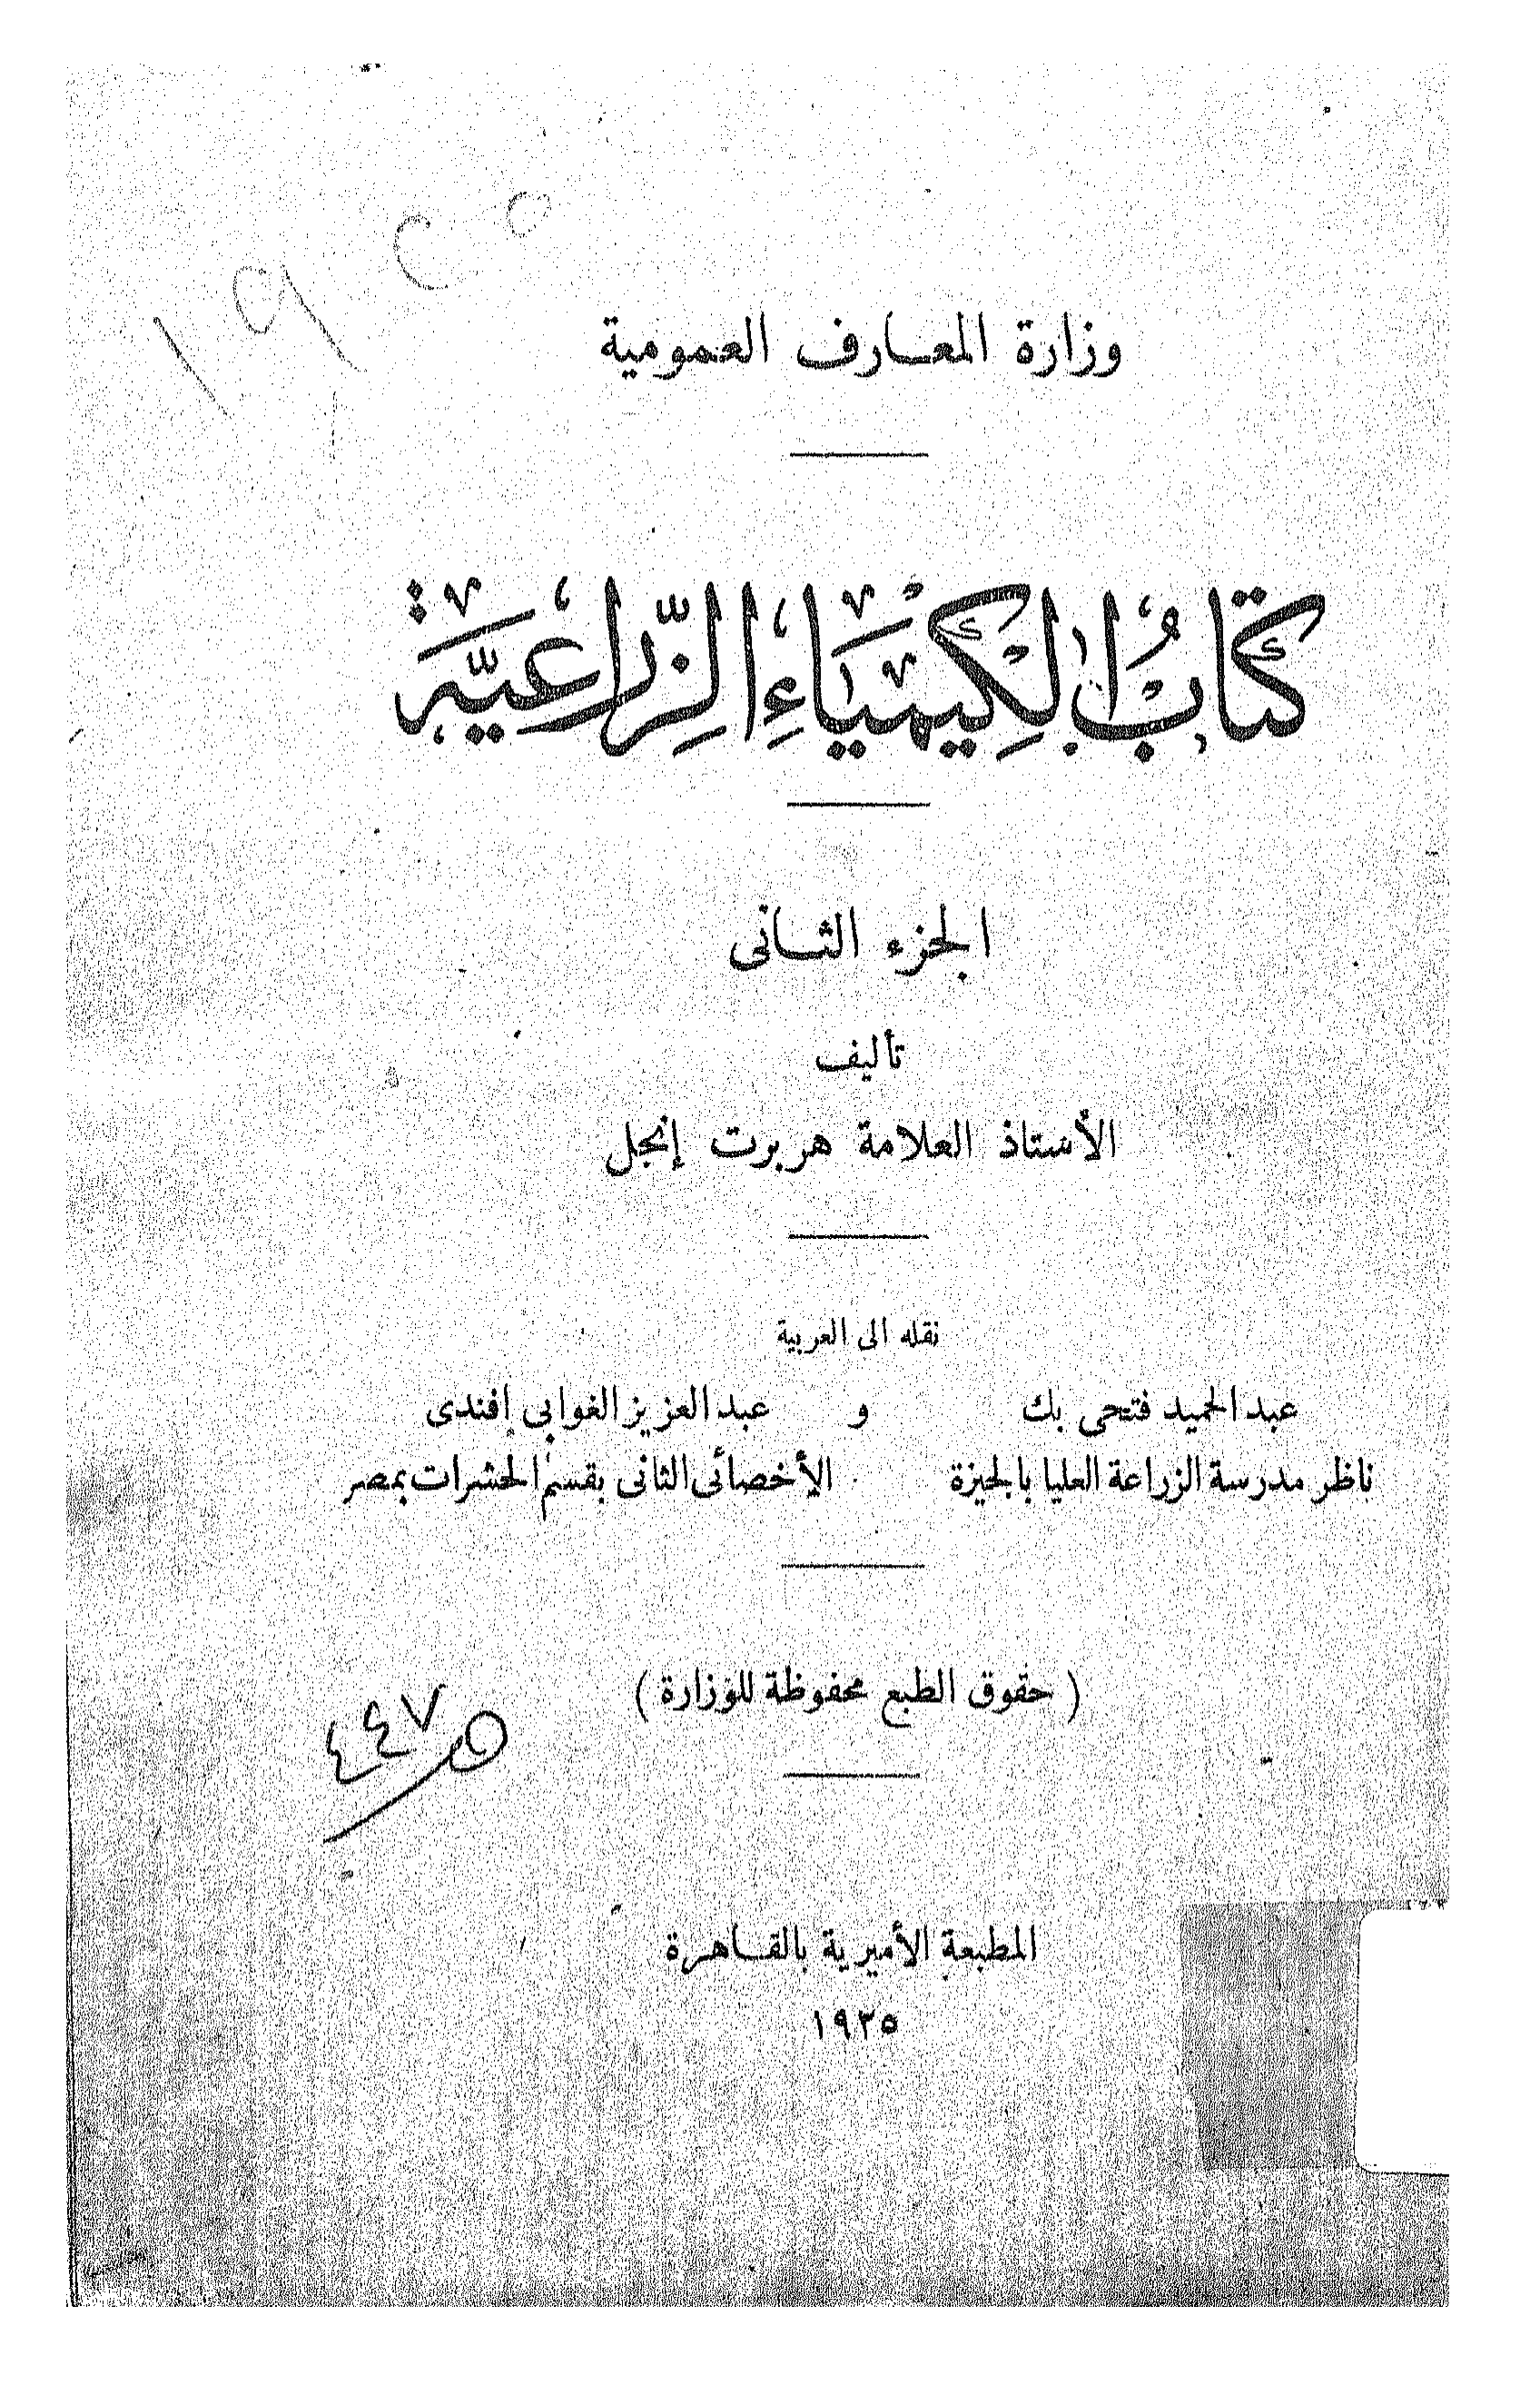 وزارة المعارف العمومية
كتاب الكيمياء الزراعية
الجزء الثانى
تأليف
الأستاذ العلامة هربرت إنجل
نقله الى العربية
عبد الحميد فتحى بك و عبد العزيز الغوابى إفندى
ناظر مدرسة الزراعة العليا بالجيزة الأخصائى الثانى بقسم الحشرات بمصر
( حقوق الطبع محفوظة للوزارة )
٤٤٧
المطبعة الأميرية بالقاهرة
١٩٢٥